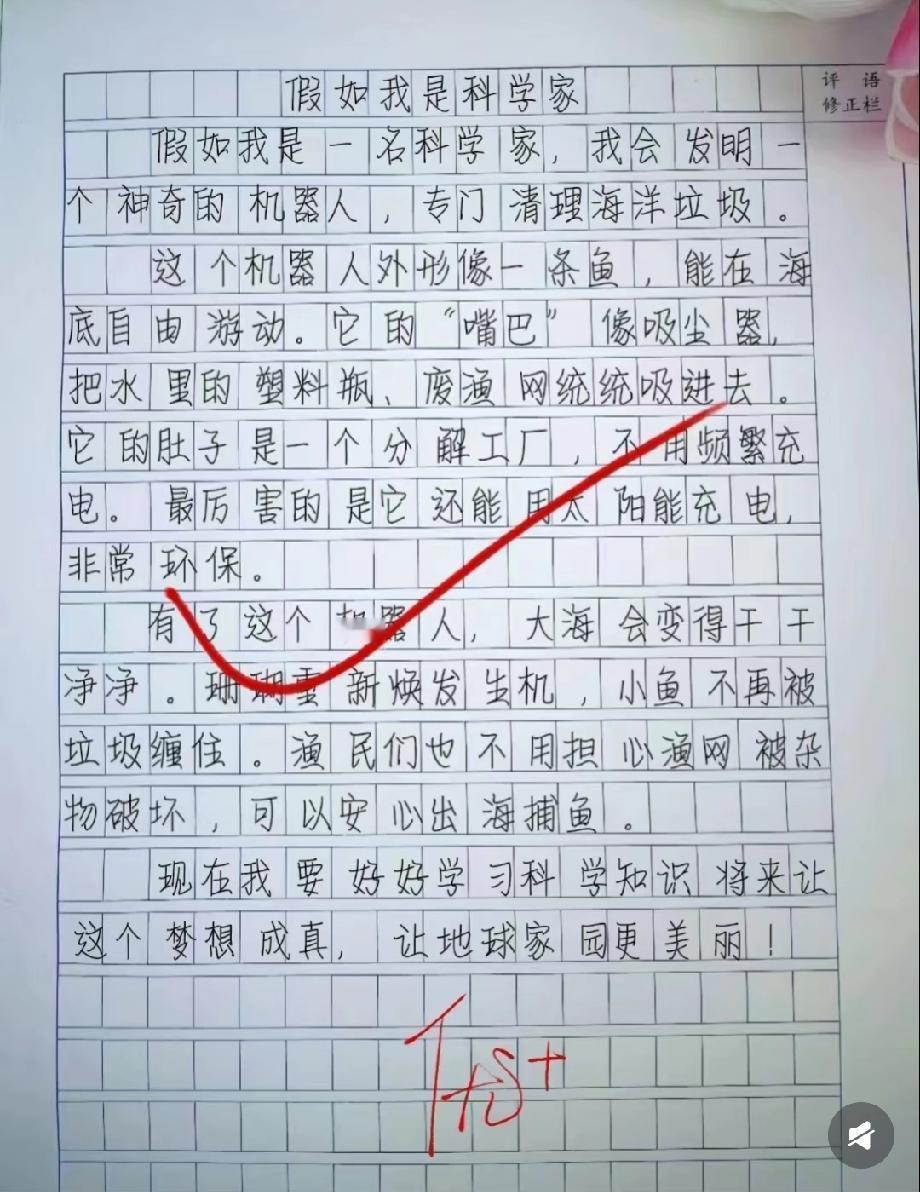 假如我是科学家
评 语
修正栏
假如我是一名科学家，我会发明一
个神奇的机器人，专门清理海洋垃圾。
这个机器人外形像一条鱼，能在海
底自由游动。它的“嘴巴”像吸尘器，
把水里的塑料瓶、废渔网统统吸进去。
它的肚子是一个分解工厂，不用频繁充
电。最厉害的是它还能用太阳能充电，
非常环保。
有了这个机器人，大海会变得干干
净净。珊瑚重新焕发生机，小鱼不再被
垃圾缠住。渔民们也不用担心渔网被杂
物破坏，可以安心出海捕鱼。
现在我要好好学习科学知识将来让
这个梦想成真，让地球家园更美丽！
优+